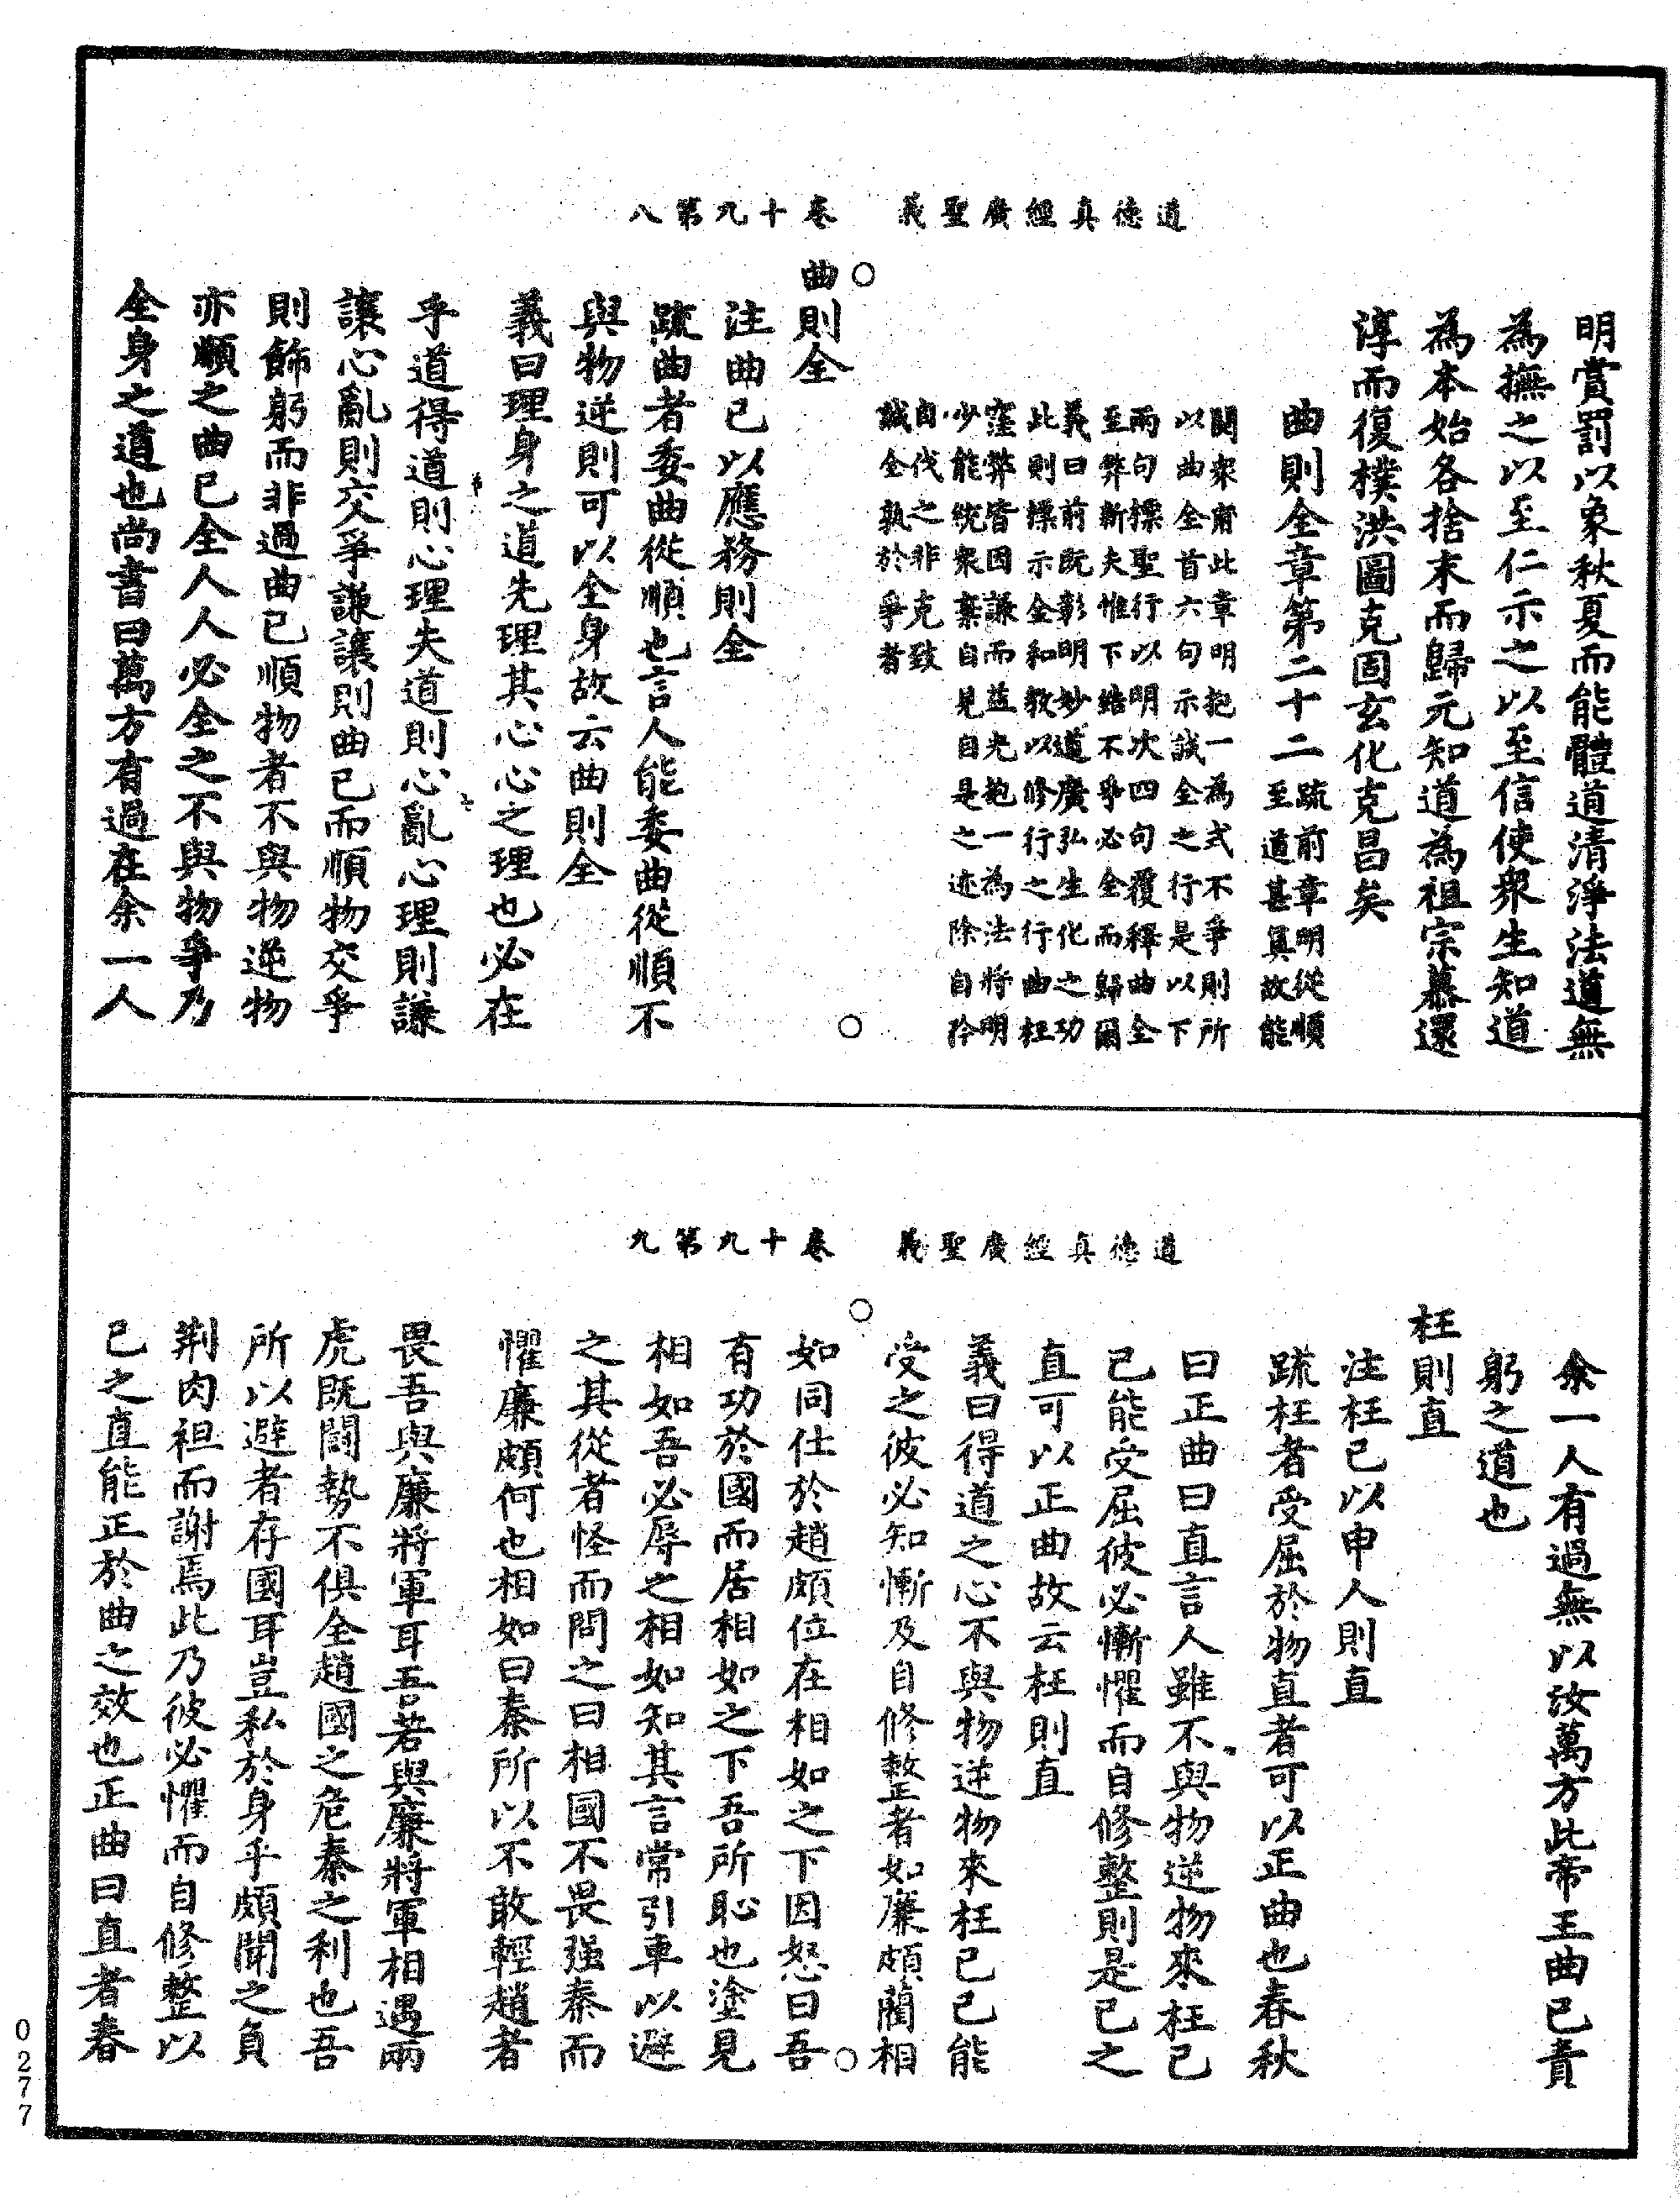 道德真經廣聖義　卷十九第八
明賞罰以象秋夏而能體道清淨法道無
為撫之以至仁示之以至信使眾生知道
為本始各捨末而歸元知道為祖宗慕還
淳而復樸洪圖克固玄化克昌矣
曲則全章第二十二
疏前章明從順
至道甚真故能
閱衆甫此章明抱一為式不爭則所
以曲全首六句示誠全之行是以下
兩句標聖行以明次四句覆釋曲全
至弊新夫惟下結不爭必全而歸爾
義曰前既彰明妙道廣弘生化之功
此則標示全和教以修行之行曲枉
窪弊皆因謙而益光抱一為法將明
少能統衆棄自見自是之迹除自矜
自伐之非克致
誠全孰於爭者
曲則全
注曲已以應務則全
疏曲者委曲從順也言人能委曲從順不
與物逆則可以全身故云曲則全
義曰理身之道先理其心心之理也必在
乎道得道則心理失道則心亂心理則謙
讓心亂則交爭謙讓則曲己而順物交爭
則飾躬而非過曲己順物者不與物逆物
亦順之曲己全人人必全之不與物爭乃
全身之道也尚書曰萬方有過在余一人
道德真經廣聖義　卷十九第九
余一人有過無以汝萬方此帝王曲己責
躬之道也
枉則直
注枉己以申人則直
疏枉者受屈於物直者可以正曲也春秋
曰正曲曰直言人雖不與物逆物來枉己
己能受屈彼必慚懼而自修整則是己之
直可以正曲故云枉則直
義曰得道之心不與物逆物來枉己己能
受之彼必知慚及自修整者如廉頗藺相
如同仕於趙頗位在相如之下因怒曰吾
有功於國而居相如之下吾所恥也塗見
相如吾必辱之相如知其言常引車以避
之其從者怪而問之曰相國不畏强秦而
懼廉頗何也相如曰秦所以不敢輕趙者
畏吾與廉將軍耳吾若與廉將軍相遇兩
虎既鬬勢不俱全趙國之危秦之利也吾
所以避者存國耳豈私於身乎頗聞之負
荆肉袒而謝焉此乃彼必懼而自修整以
己之直能正於曲之效也正曲曰直者春
0277